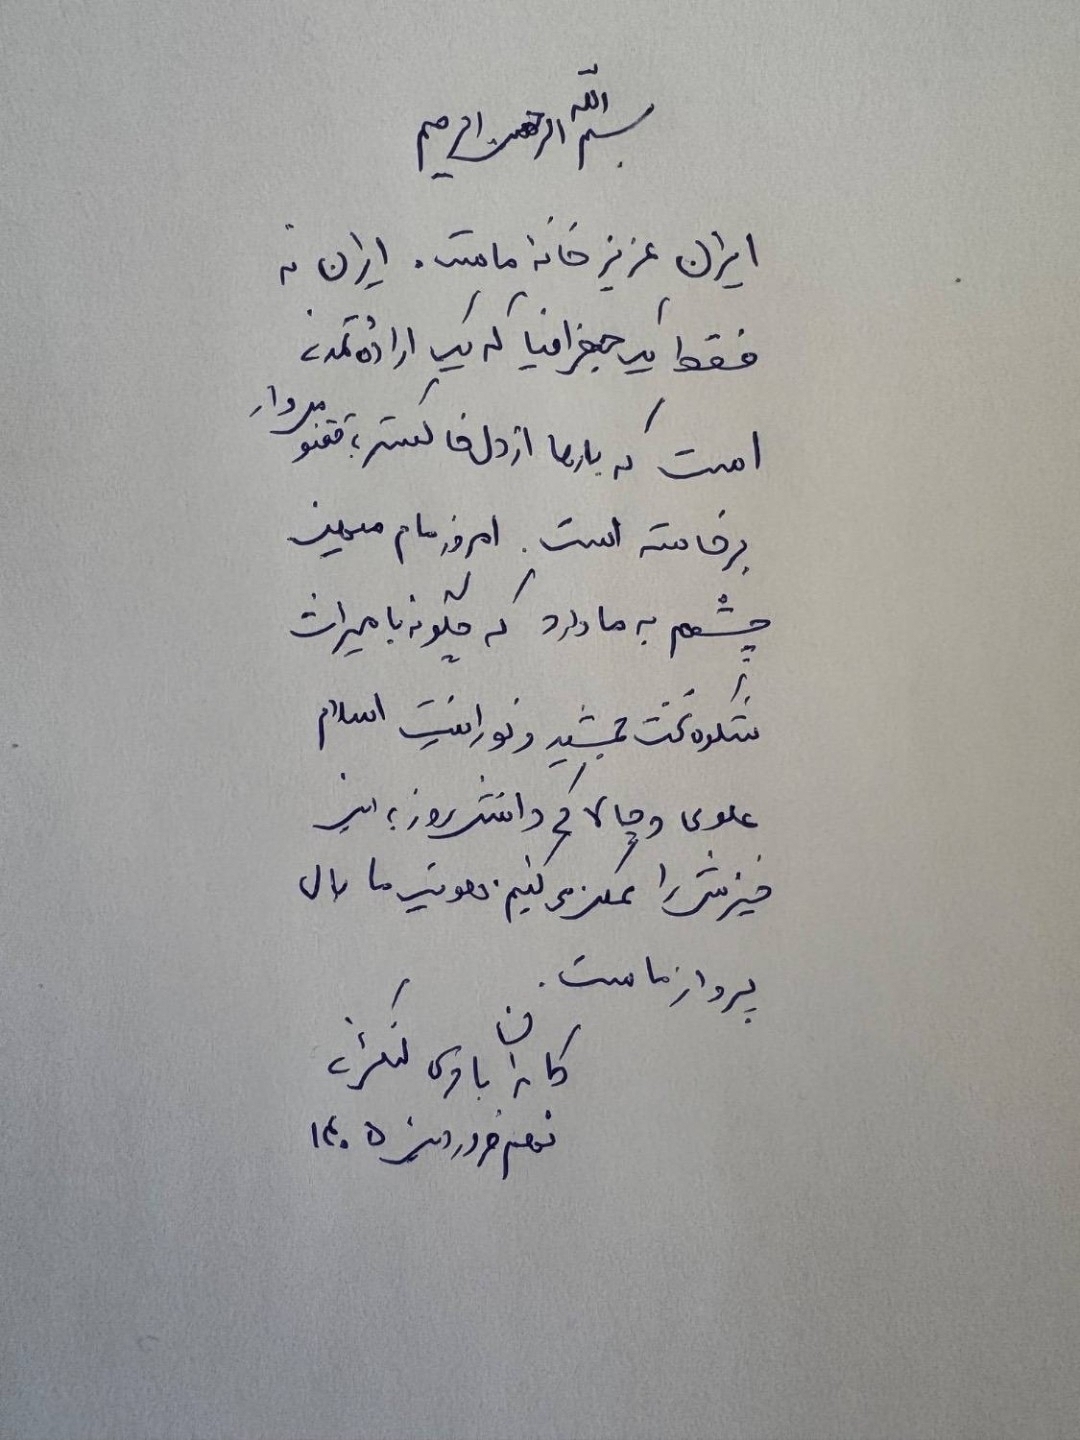 بسم الله الرحمن الرحیم
ایران عزیز خانهٔ ماست. ایران نه
فقط یک جغرافیا که یک ارادهٔ تمدنی
است که بارها از دل خاکستر، ققنوس‌وار
برخاسته است. امروز مام میهن
چشم به ما دارد که چگونه با میراث
شکوه تخت جمشید و نورانیت اسلام
علوی و چالاکی دانش روز، این
خیزش را ممکن می‌کنیم. هویت ما بال
پرواز ماست.
کامران باوی لنگرانی
نهم فروردین ۱۴۰۵